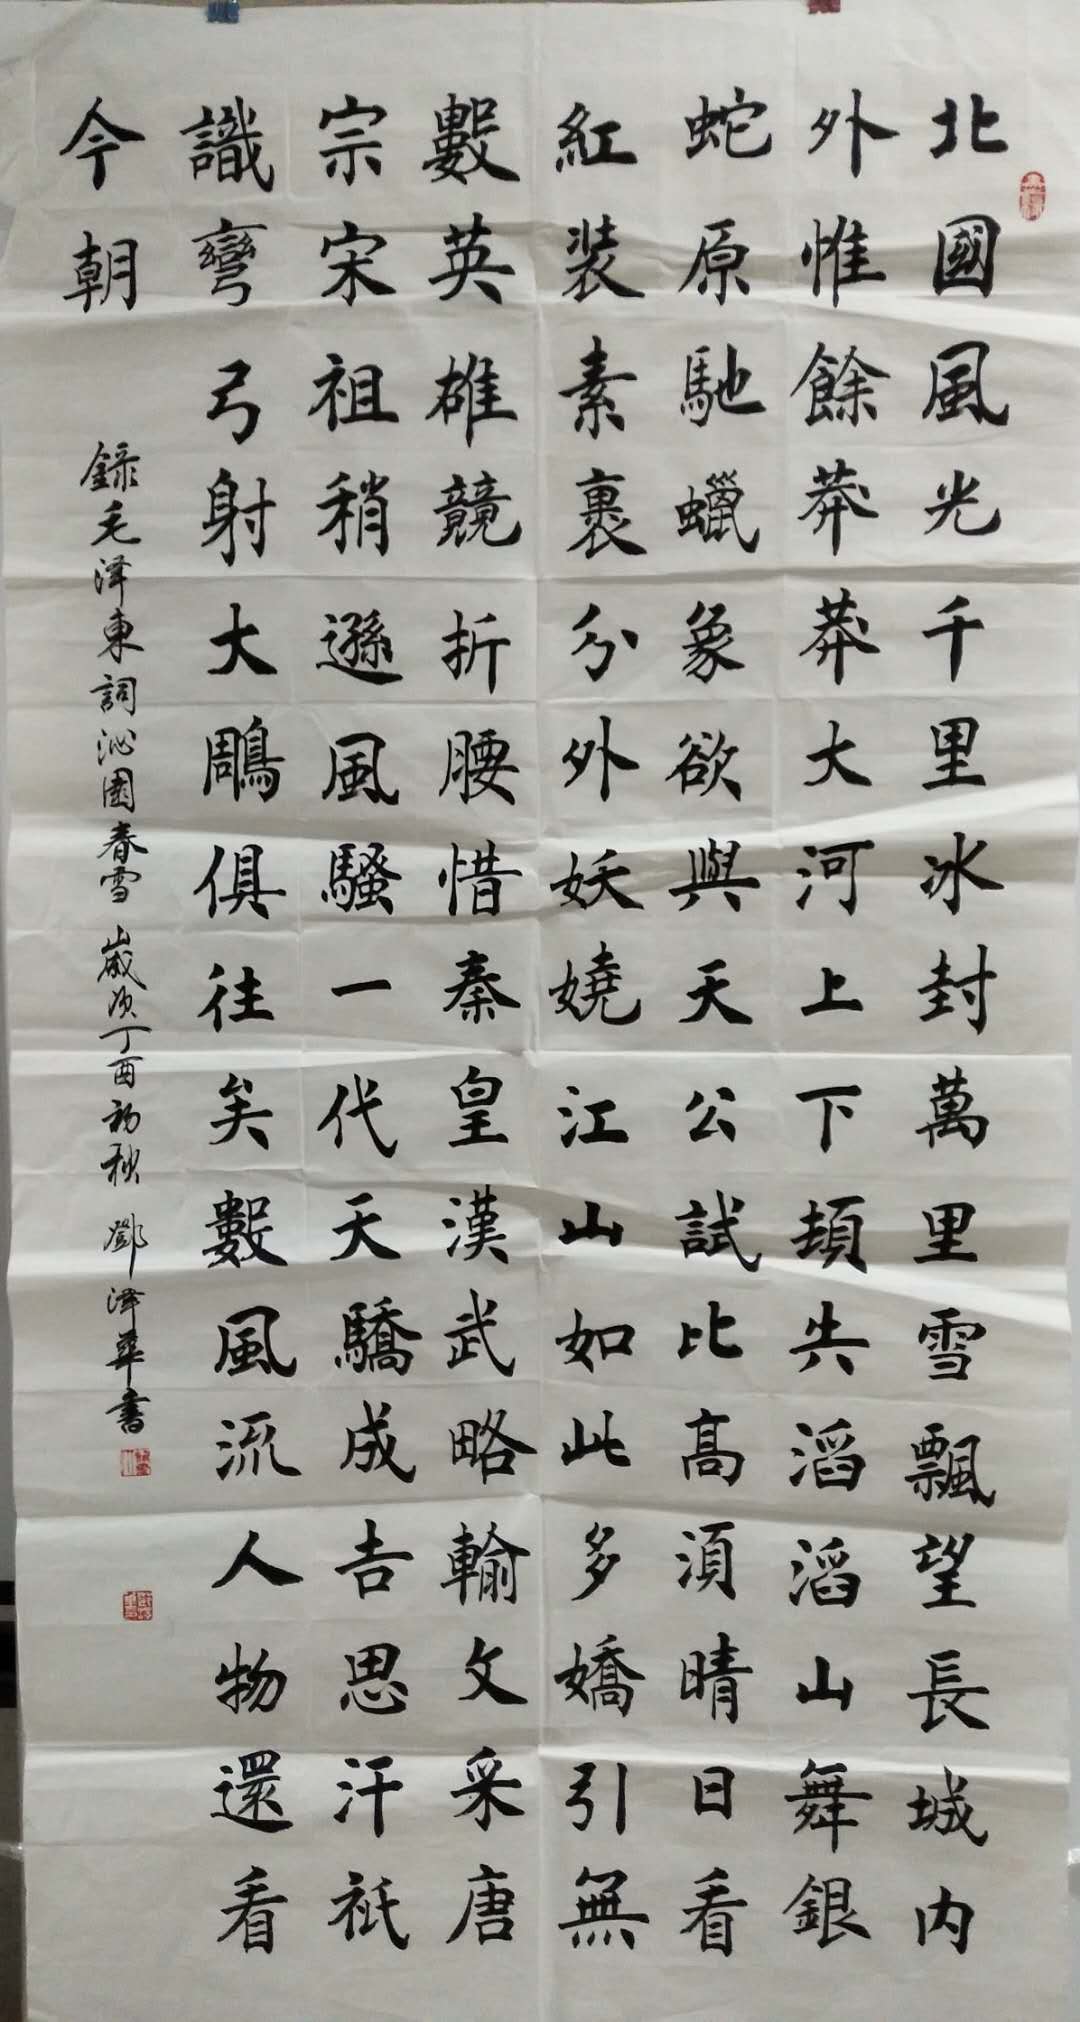 北國風光千里冰封萬里雪飄望長城内
外惟餘莽莽大河上下頓失滔滔山舞銀
蛇原馳蠟象欲與天公試比高須晴日看
紅装素裹分外妖嬈江山如此多嬌引無
數英雄競折腰惜秦皇漢武略輸文采唐
宗宋祖稍遜風騷一代天驕成吉思汗祇
識彎弓射大鵰俱往矣數風流人物還看
今朝
錄毛澤東詞沁園春雪 歲次丁酉初秋 鄧澤華書